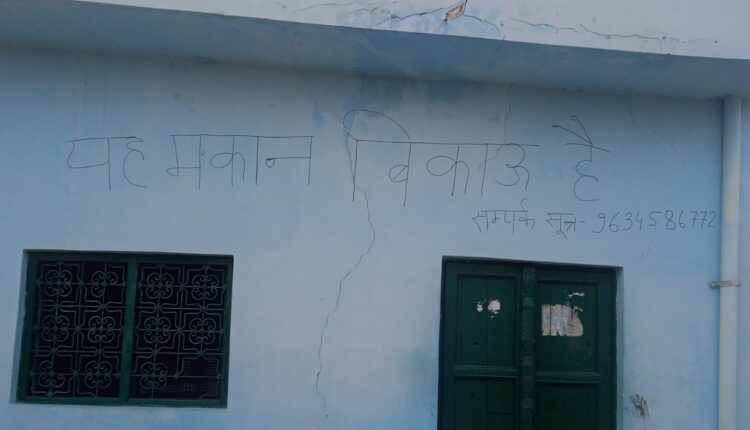 यह मकान बिकाऊ है
सम्पर्क सूत्र- 9634586772